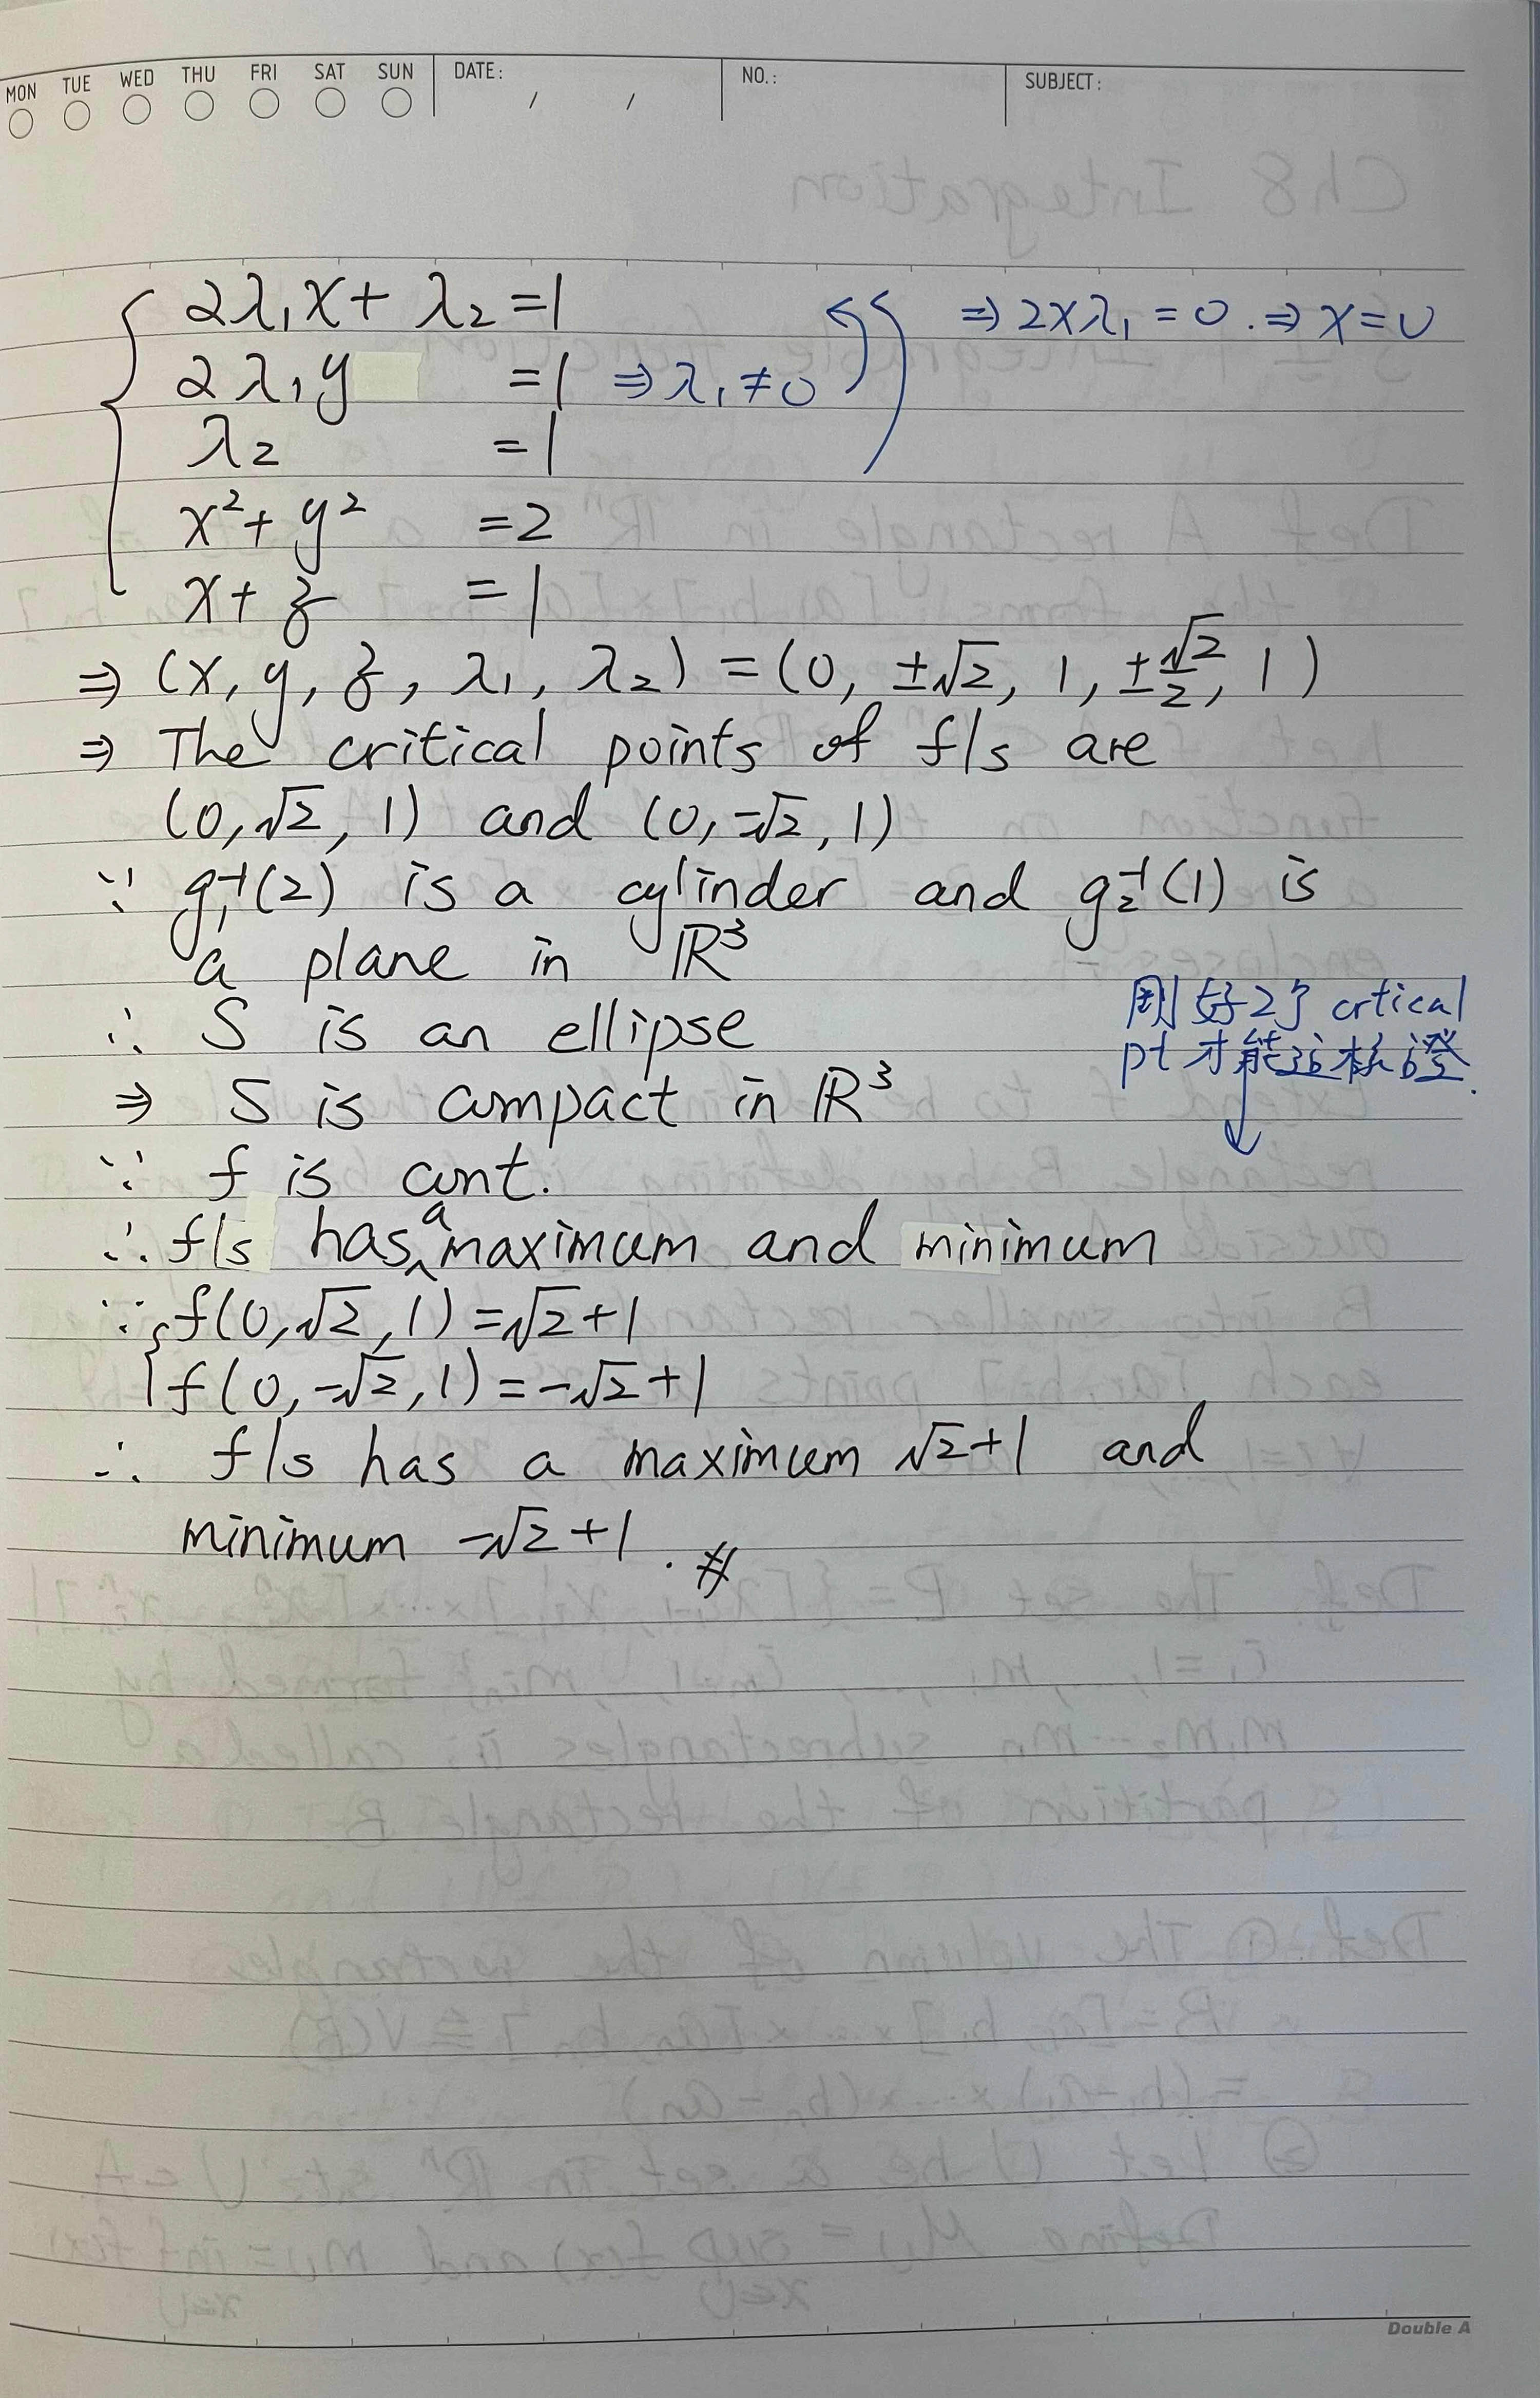 MON TUE WED THU FRI SAT SUN DATE: / / NO.: SUBJECT:
2λ₁x + λ₂ = 1 ⇒ 2xλ₁ = 0. ⇒ x = 0
2λ₁y = 1 ⇒ λ₁ ≠ 0
λ₂ = 1
x² + y² = 2
x + z = 1
⇒ (x, y, z, λ₁, λ₂) = (0, ±√2, 1, ±√2/2, 1)
⇒ The critical points of f|s are
(0, √2, 1) and (0, -√2, 1)
∵ g₁⁻¹(2) is a cylinder and g₂⁻¹(1) is
a plane in ℝ³
∴ S is an ellipse
剛好2個 crtical
pt 才能這樣證.
⇒ S is compact in ℝ³
∵ f is cont.
∴ f|s has a maximum and minimum
∵ { f(0, √2, 1) = √2 + 1
f(0, -√2, 1) = -√2 + 1
∴ f|s has a maximum √2 + 1 and
minimum -√2 + 1. #
Double A